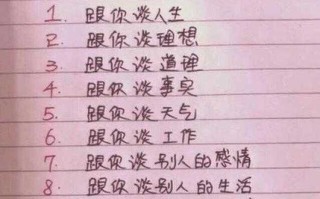 1. 跟你谈人生
2. 跟你谈理想
3. 跟你谈道理
4. 跟你谈事实
5. 跟你谈天气
6. 跟你谈工作
7. 跟你谈别人的感情
8. 跟你谈别人的生活